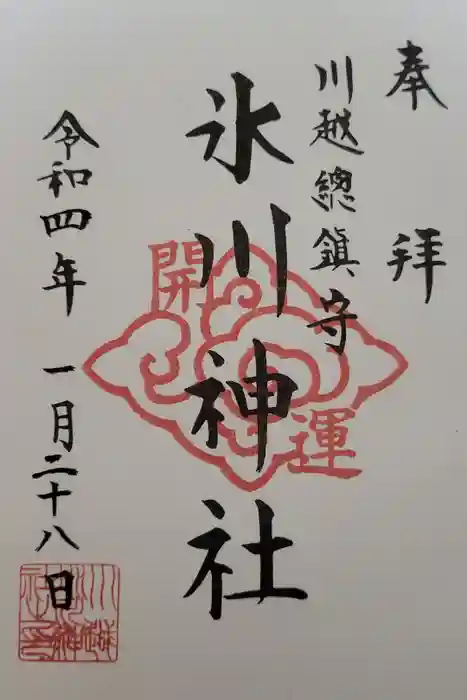 奉拝
川越總鎮守
氷川神社
開運
令和四年一月二十八日